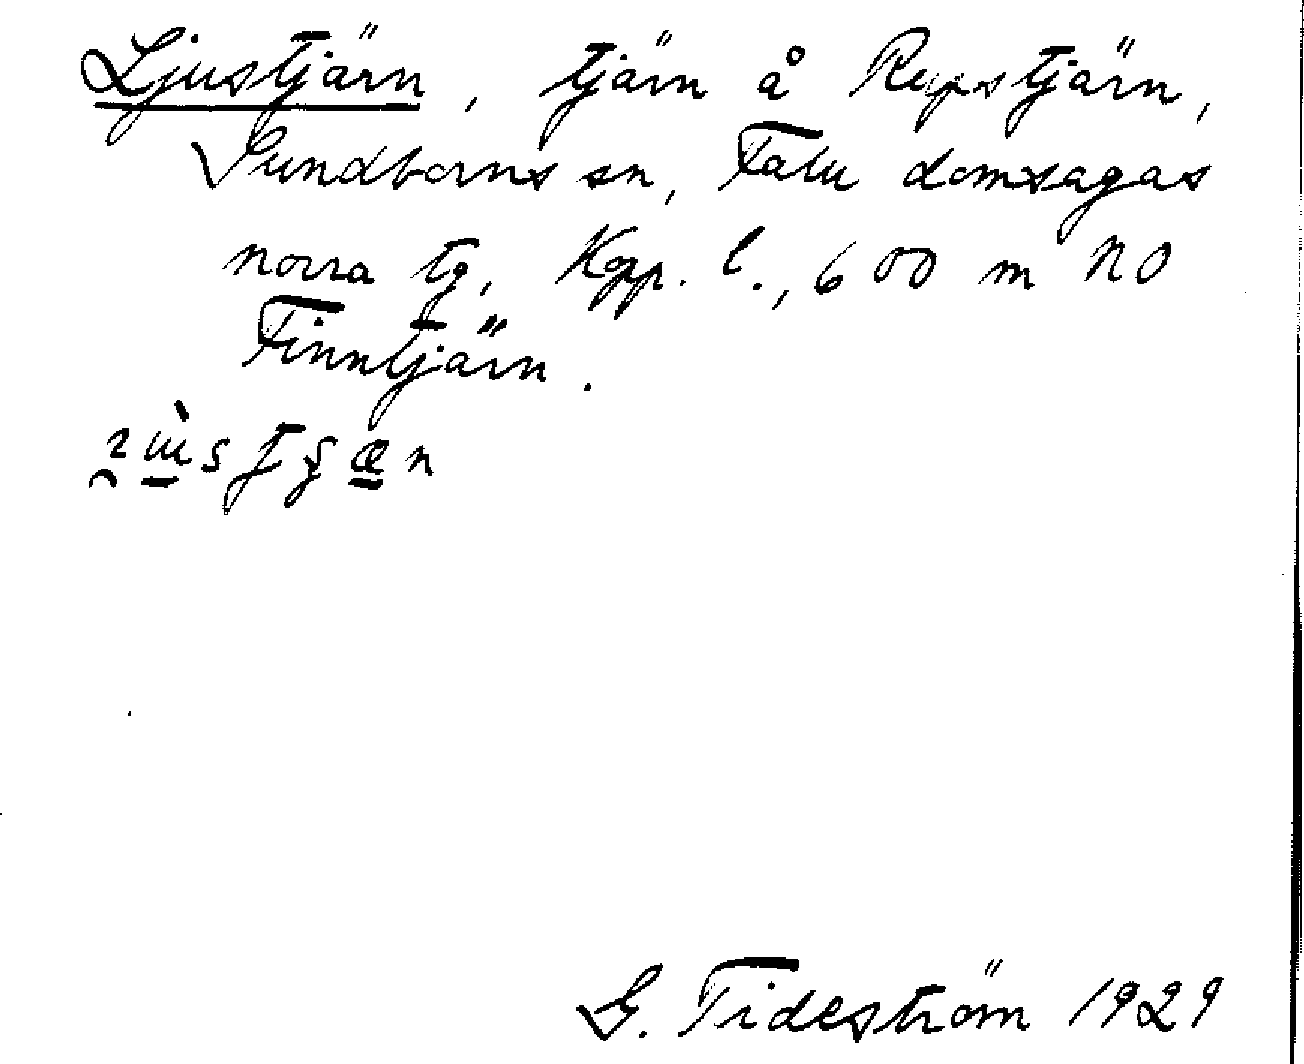 Ljustjärn, tjärn å Repstjärn,
Sundborns sn, Falu domsagas
norra tg, Kopp. l., 600 m NO
Finntjärn.
G. Tideström 1929